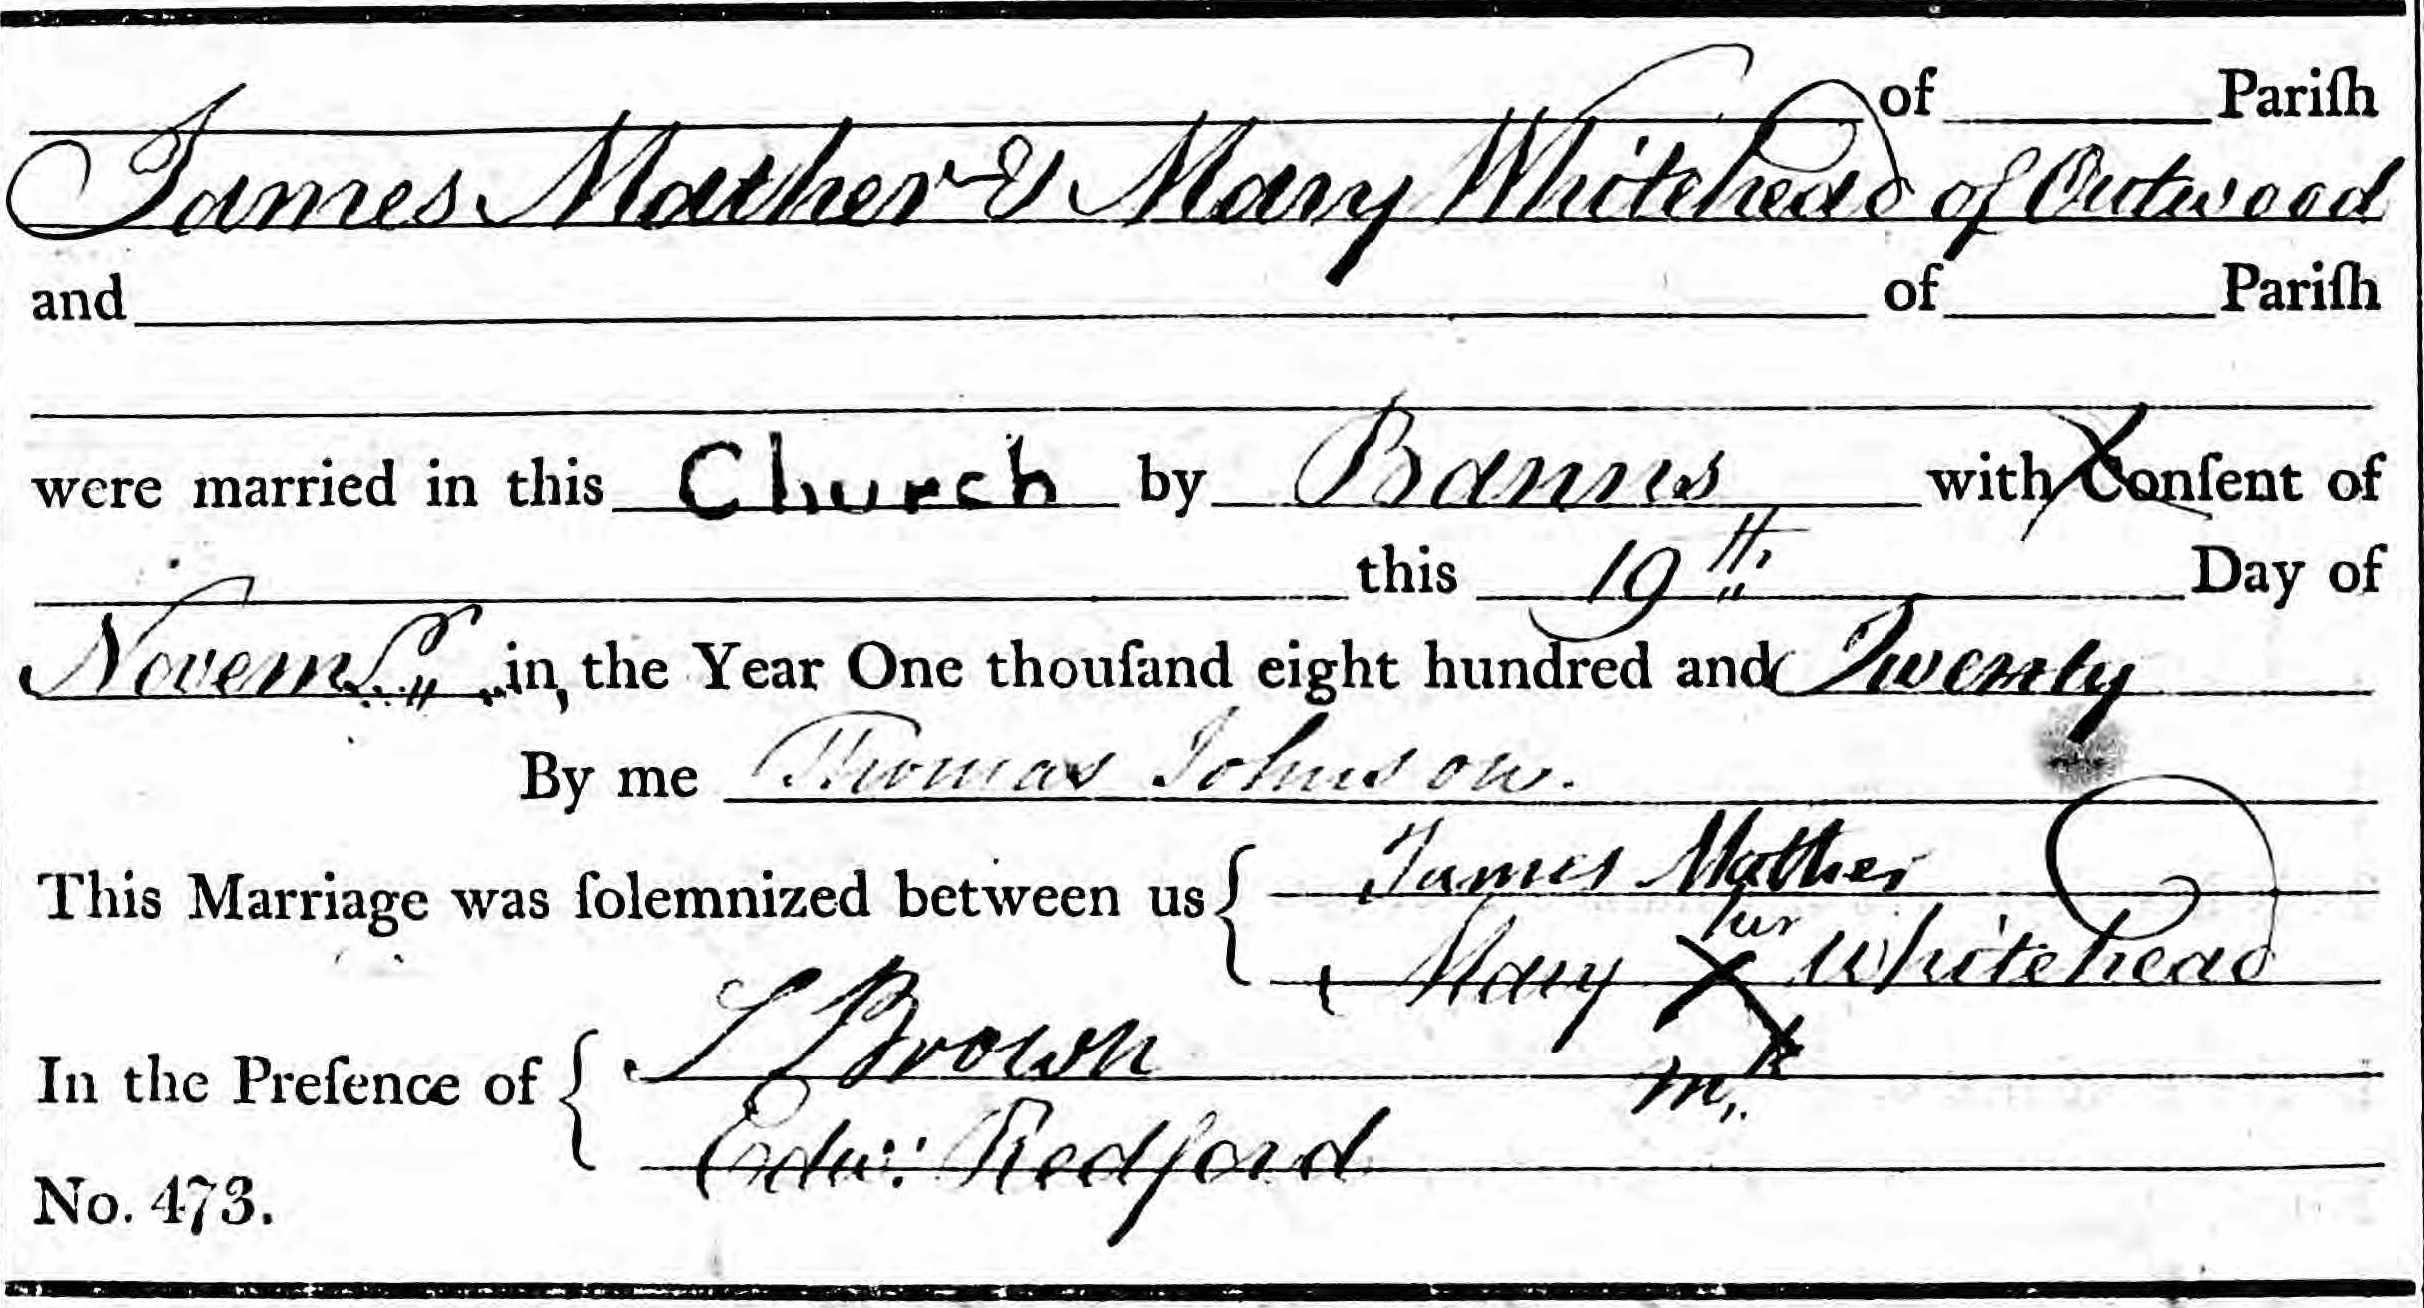 of Pariſh
James Mather & Mary Whitehead of Outwood
and of Pariſh
were married in this Church by Banns with Conſent of
this 19th Day of
Novemr in the Year One thouſand eight hundred and Twenty
By me Thomas Johnson.
This Marriage was ſolemnized between us { James Mather
her
Mary X Whitehead
mk
In the Preſence of { S Brown
Edw: Redford
No. 473.